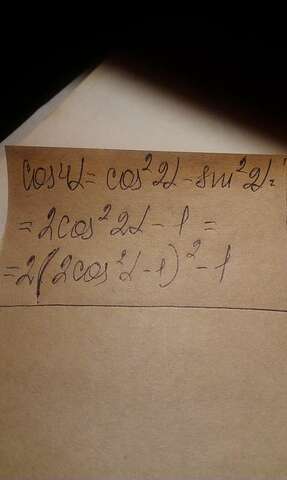 cos4α = cos²2α - sin²2α =
= 2cos²2α - 1 =
= 2(2cos²α - 1)² - 1